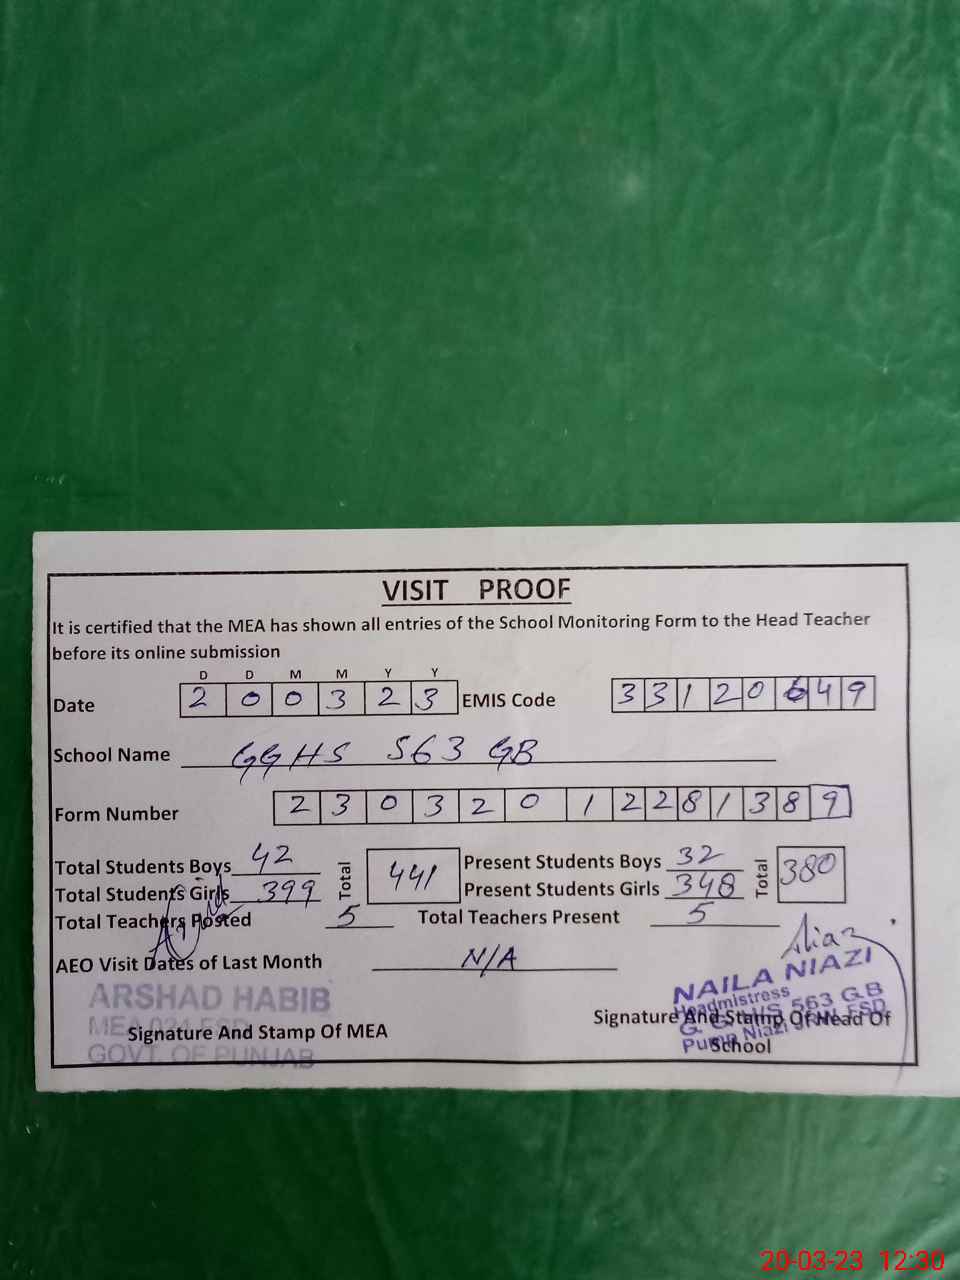 VISIT PROOF
It is certified that the MEA has shown all entries of the School Monitoring Form to the Head Teacher
before its online submission
D D M M Y Y
Date 2 0 0 3 2 3 EMIS Code 3 3 1 2 0 6 4 9
School Name GGHS 563 GB
Form Number 2 3 0 3 2 0 1 2 2 8 1 3 8 9
Total Students Boys 42 Total 441 Present Students Boys 32 Total 380
Total Students Girls 399 Present Students Girls 348
Total Teachers Posted 5 Total Teachers Present 5
AEO Visit Dates of Last Month N/A
ARSHAD HABIB
MEA
GOVT. OF PUNJAB
Signature And Stamp Of MEA
NAILA NIAZI
Headmistress
563 GB
Niazi
Signature And Stamp Of Head Of
School
20-03-23 12:30